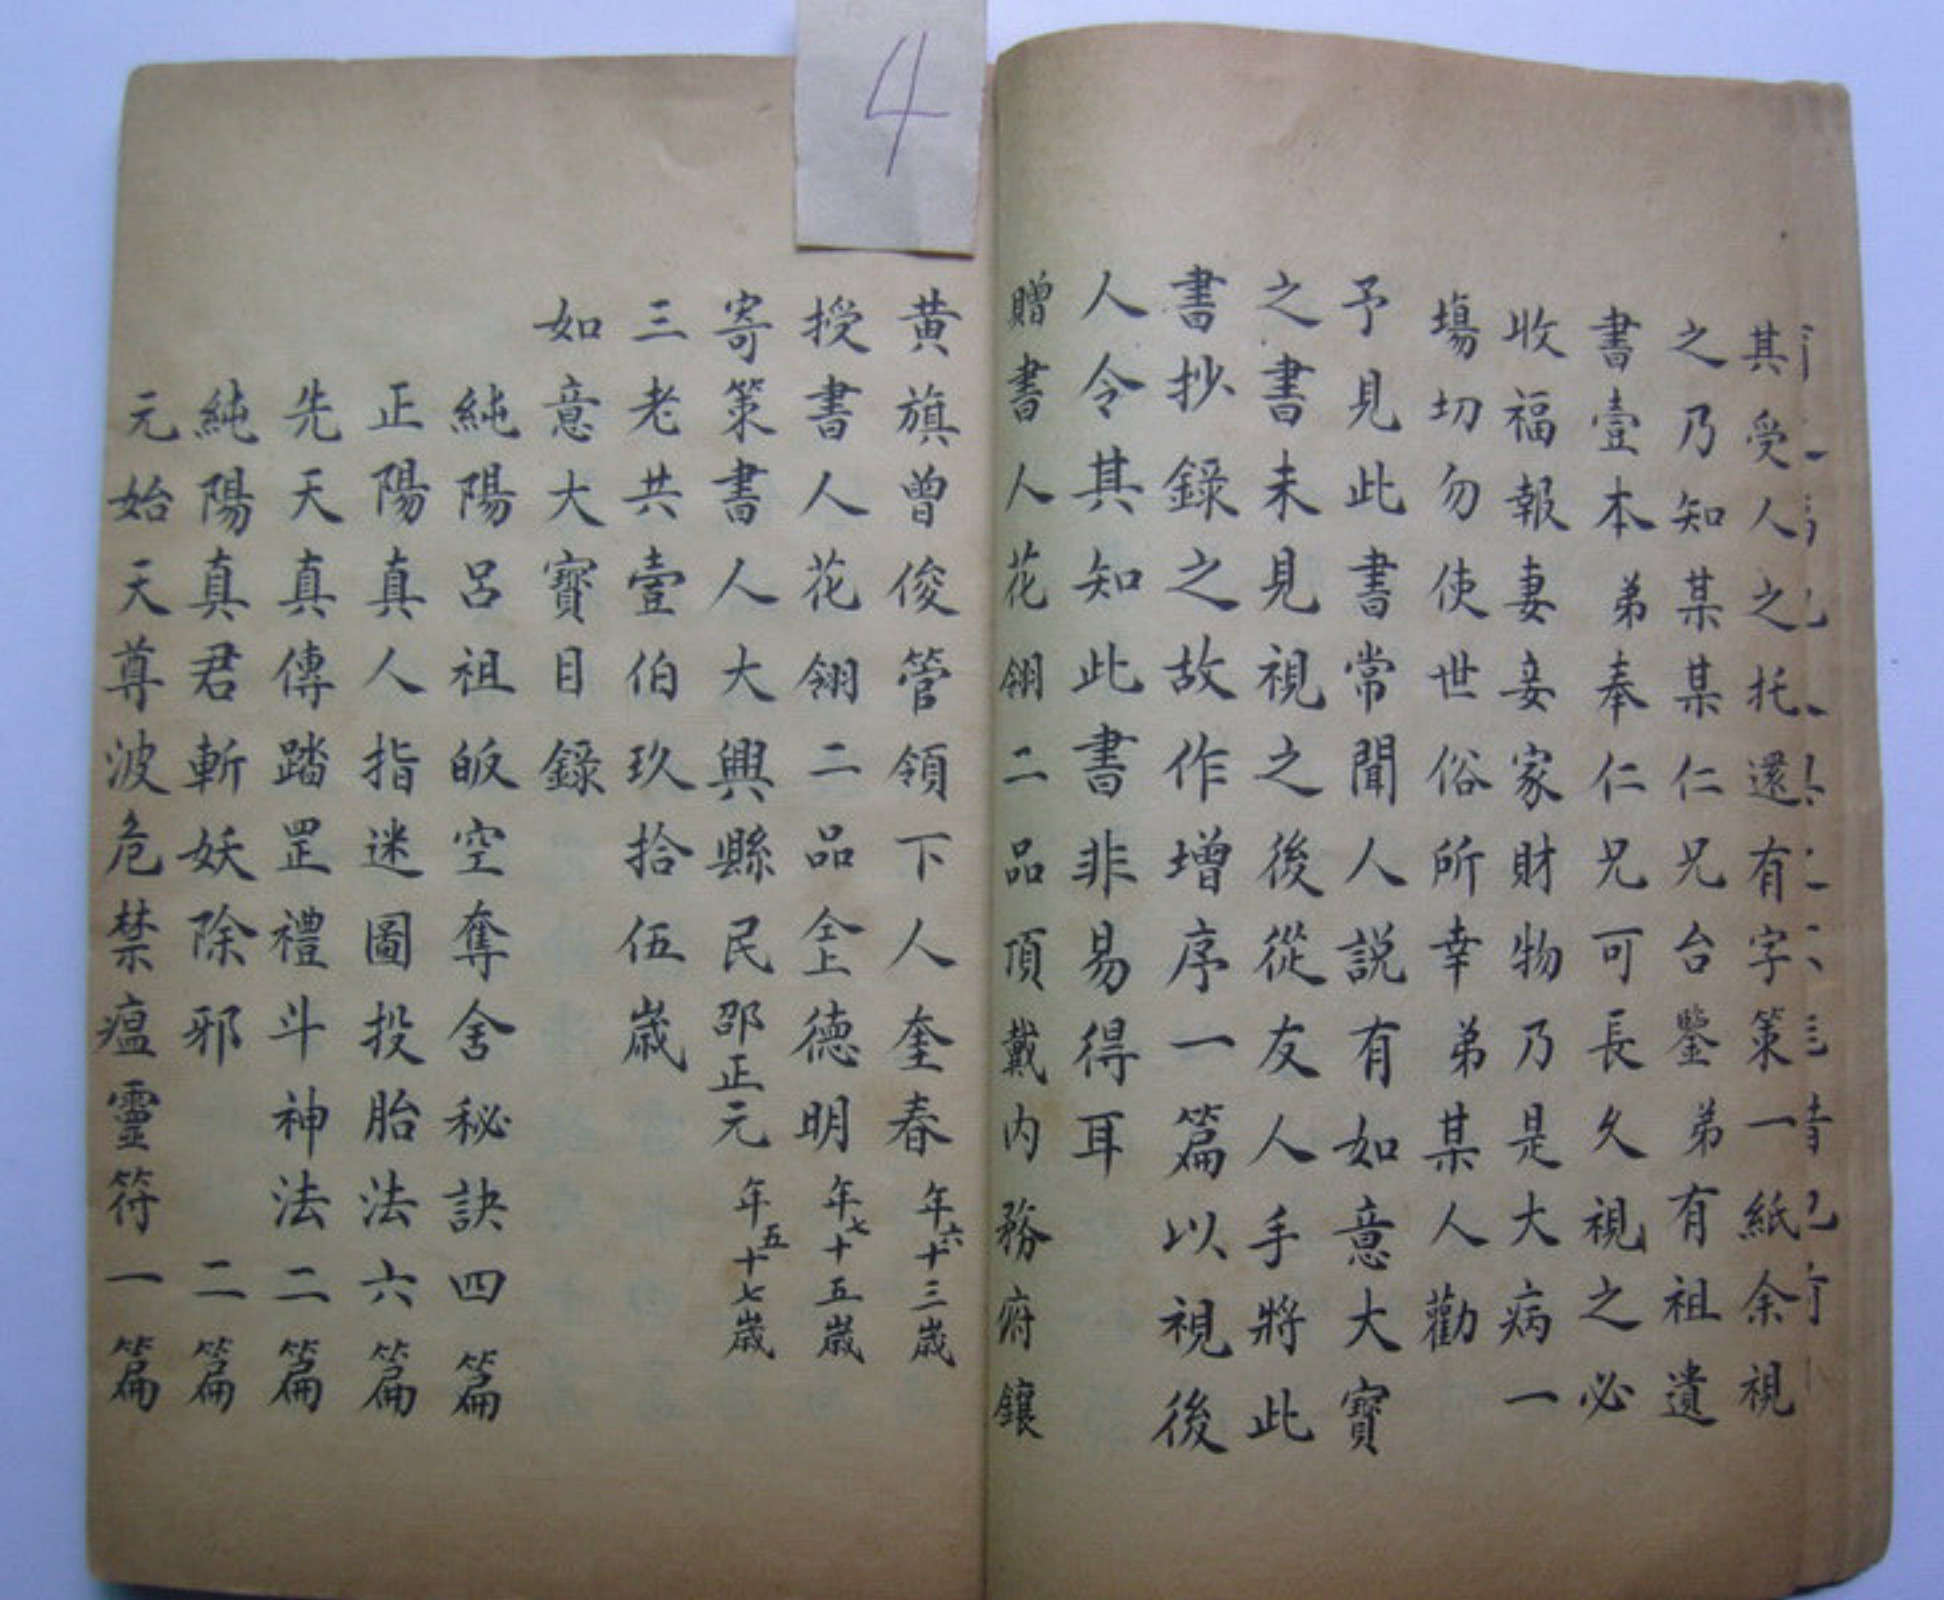 4
其受人之托還有字策一紙余視
之乃知某某仁兄台鑒弟有祖遺
書壹本弟奉仁兄可長久視之必
收福報妻妾家財物乃是大病一
塲切勿使世俗所幸弟某人勸
予見此書常聞人説有如意大寶
之書未見視之後從友人手將此
書抄錄之故作增序一篇以視後
人令其知此書非易得耳
贈書人花翎二品頂戴内務府鑲
黄旗曾俊管領下人奎春年六十三歲
授書人花翎二品仝上德明年七十五歲
寄策書人大興縣民邵正元年五十七歲
三老共壹伯玖拾伍歲
如意大寶目錄
純陽呂祖皈空奪舍秘訣四篇
正陽真人指迷圖投胎法六篇
先天真傳踏罡禮斗神法二篇
純陽真君斬妖除邪二篇
元始天尊波危禁瘟靈符一篇